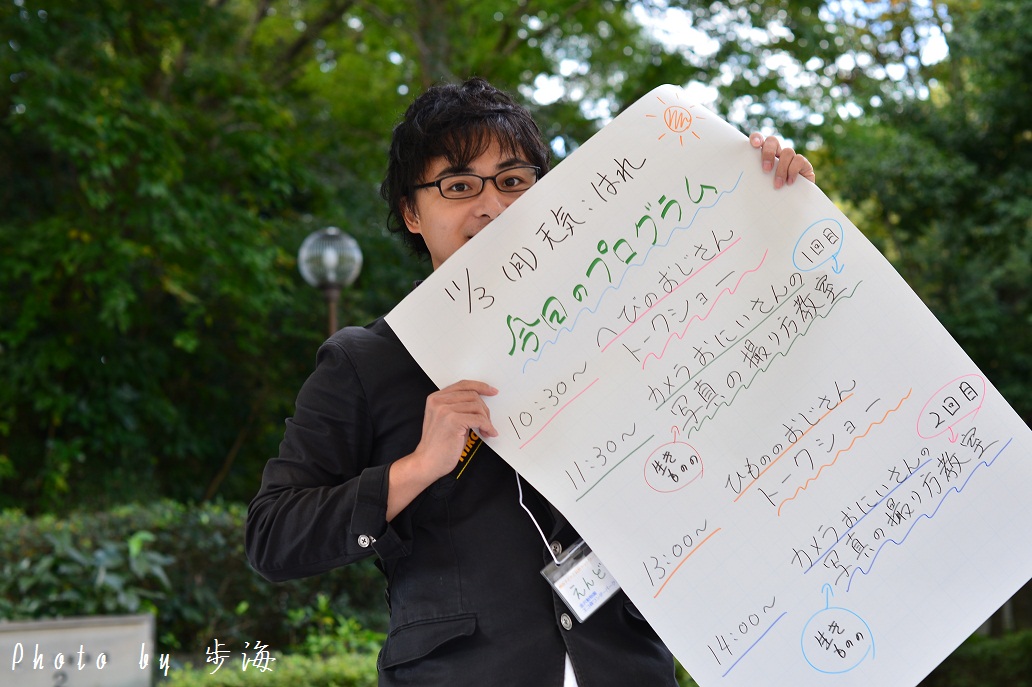 11/3 (月) 天気:はれ
今日のプログラム
10:30〜 へびのおじさん
トークショー
11:30〜 カメラおにいさんの
写真の撮り方教室
1回目
生きもの
13:00〜 ひもののおじさん
トークショー
14:00〜 カメラおにいさんの
写真の撮り方教室
2回目
生きもの
えんど
Photo by 歩海
2